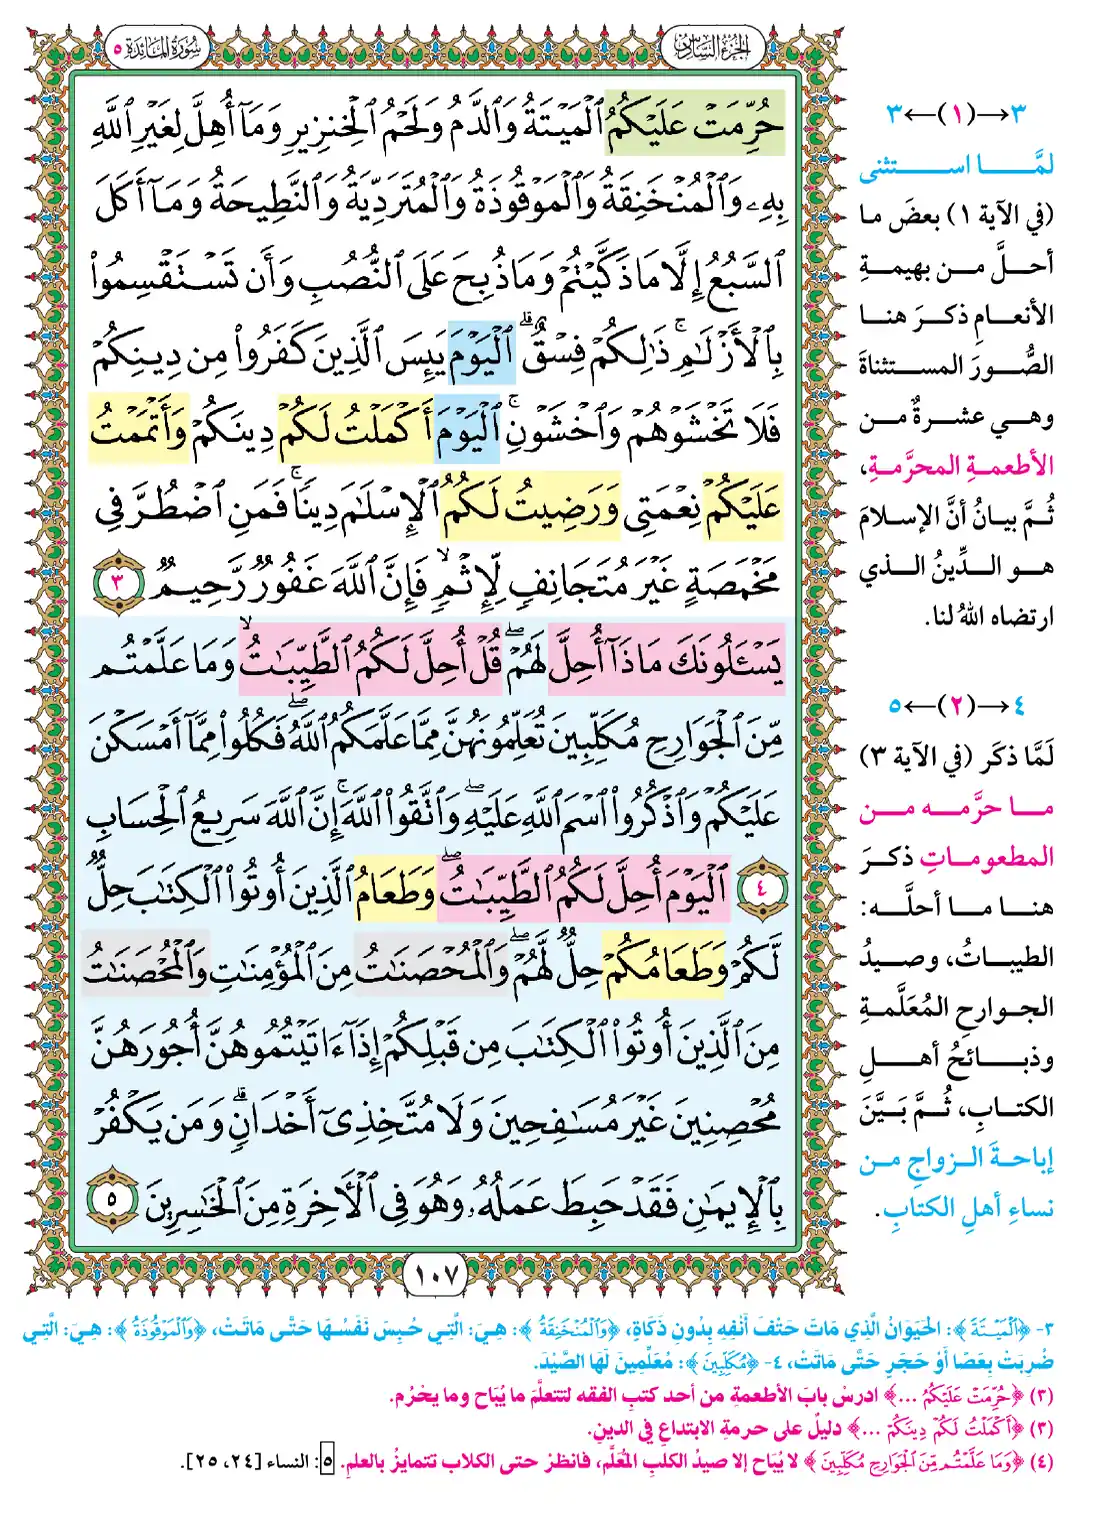 الجزء السادس
سورة المائدة ٥
حُرِّمَتْ عَلَيْكُمُ ٱلْمَيْتَةُ وَٱلدَّمُ وَلَحْمُ ٱلْخِنزِيرِ وَمَآ أُهِلَّ لِغَيْرِ ٱللَّهِ
بِهِۦ وَٱلْمُنْخَنِقَةُ وَٱلْمَوْقُوذَةُ وَٱلْمُتَرَدِّيَةُ وَٱلنَّطِيحَةُ وَمَآ أَكَلَ
ٱلسَّبُعُ إِلَّا مَا ذَكَّيْتُمْ وَمَا ذُبِحَ عَلَى ٱلنُّصُبِ وَأَن تَسْتَقْسِمُوا۟
بِٱلْأَزْلَٰمِ ۚ ذَٰلِكُمْ فِسْقٌ ۗ ٱلْيَوْمَ يَئِسَ ٱلَّذِينَ كَفَرُوا۟ مِن دِينِكُمْ
فَلَا تَخْشَوْهُمْ وَٱخْشَوْنِ ۚ ٱلْيَوْمَ أَكْمَلْتُ لَكُمْ دِينَكُمْ وَأَتْمَمْتُ
عَلَيْكُمْ نِعْمَتِى وَرَضِيتُ لَكُمُ ٱلْإِسْلَٰمَ دِينًا ۚ فَمَنِ ٱضْطُرَّ فِى
مَخْمَصَةٍ غَيْرَ مُتَجَانِفٍ لِّإِثْمٍ ۙ فَإِنَّ ٱللَّهَ غَفُورٌ رَّحِيمٌ ٣
يَسْـَٔلُونَكَ مَاذَآ أُحِلَّ لَهُمْ ۖ قُلْ أُحِلَّ لَكُمُ ٱلطَّيِّبَٰتُ ۙ وَمَا عَلَّمْتُم
مِّنَ ٱلْجَوَارِحِ مُكَلِّبِينَ تُعَلِّمُونَهُنَّ مِمَّا عَلَّمَكُمُ ٱللَّهُ ۖ فَكُلُوا۟ مِمَّآ أَمْسَكْنَ
عَلَيْكُمْ وَٱذْكُرُوا۟ ٱسْمَ ٱللَّهِ عَلَيْهِ ۖ وَٱتَّقُوا۟ ٱللَّهَ ۚ إِنَّ ٱللَّهَ سَرِيعُ ٱلْحِسَابِ
٤ ٱلْيَوْمَ أُحِلَّ لَكُمُ ٱلطَّيِّبَٰتُ ۖ وَطَعَامُ ٱلَّذِينَ أُوتُوا۟ ٱلْكِتَٰبَ حِلٌّ
لَّكُمْ وَطَعَامُكُمْ حِلٌّ لَّهُمْ ۖ وَٱلْمُحْصَنَٰتُ مِنَ ٱلْمُؤْمِنَٰتِ وَٱلْمُحْصَنَٰتُ
مِنَ ٱلَّذِينَ أُوتُوا۟ ٱلْكِتَٰبَ مِن قَبْلِكُمْ إِذَآ ءَاتَيْتُمُوهُنَّ أُجُورَهُنَّ
مُحْصِنِينَ غَيْرَ مُسَٰفِحِينَ وَلَا مُتَّخِذِىٓ أَخْدَانٍ ۗ وَمَن يَكْفُرْ
بِٱلْإِيمَٰنِ فَقَدْ حَبِطَ عَمَلُهُۥ وَهُوَ فِى ٱلْءَاخِرَةِ مِنَ ٱلْخَٰسِرِينَ ٥
١٠٧
٣→(١)←٣
لمَّا استثنى
(في الآية ١) بعضَ ما
أحلَّ من بهيمةِ
الأنعامِ ذكرَ هنا
الصُّورَ المستثناةَ
وهي عشرةٌ من
الأطعمةِ المحرَّمةِ،
ثُمَّ بيانُ أنَّ الإسلامَ
هو الدِّينُ الذي
ارتضاه اللهُ لنا.
٤→(٢)←٥
لَمَّا ذكَر (في الآية ٣)
ما حرَّمه من
المطعوماتِ ذكرَ
هنا ما أحلَّه:
الطيباتُ، وصيدُ
الجوارحِ المُعَلَّمةِ
وذبائحُ أهلِ
الكتابِ، ثُمَّ بَيَّنَ
إباحةَ الزواجِ من
نساءِ أهلِ الكتابِ.
٣- ﴿ٱلْمَيْتَةُ﴾: الحَيَوَانُ الَّذِي مَاتَ حَتْفَ أَنْفِهِ بِدُونِ ذَكَاةٍ، ﴿وَٱلْمُنْخَنِقَةُ﴾: هِيَ: الَّتِي حُبِسَ نَفَسُهَا حَتَّى مَاتَتْ، ﴿وَٱلْمَوْقُوذَةُ﴾: هِيَ: الَّتِي
ضُرِبَتْ بِعَصًا أَوْ حَجَرٍ حَتَّى مَاتَتْ، ٤- ﴿مُكَلِّبِينَ﴾: مُعَلِّمِينَ لَهَا الصَّيْدَ.
(٣) ﴿حُرِّمَتْ عَلَيْكُمُ ...﴾ ادرسْ بابَ الأطعمةِ من أحد كتبِ الفقه لتتعلَّمَ ما يُبَاح وما يحْرُم.
(٣) ﴿أَكْمَلْتُ لَكُمْ دِينَكُمْ ...﴾ دليلٌ على حرمةِ الابتداعِ في الدينِ.
(٤) ﴿وَمَا عَلَّمْتُم مِّنَ ٱلْجَوَارِحِ مُكَلِّبِينَ﴾ لا يُبَاح إلا صيدُ الكلبِ المُعَلَّمِ، فانظرْ حتى الكلاب تتمايزُ بالعلمِ. ٥: النساء [٢٤، ٢٥].